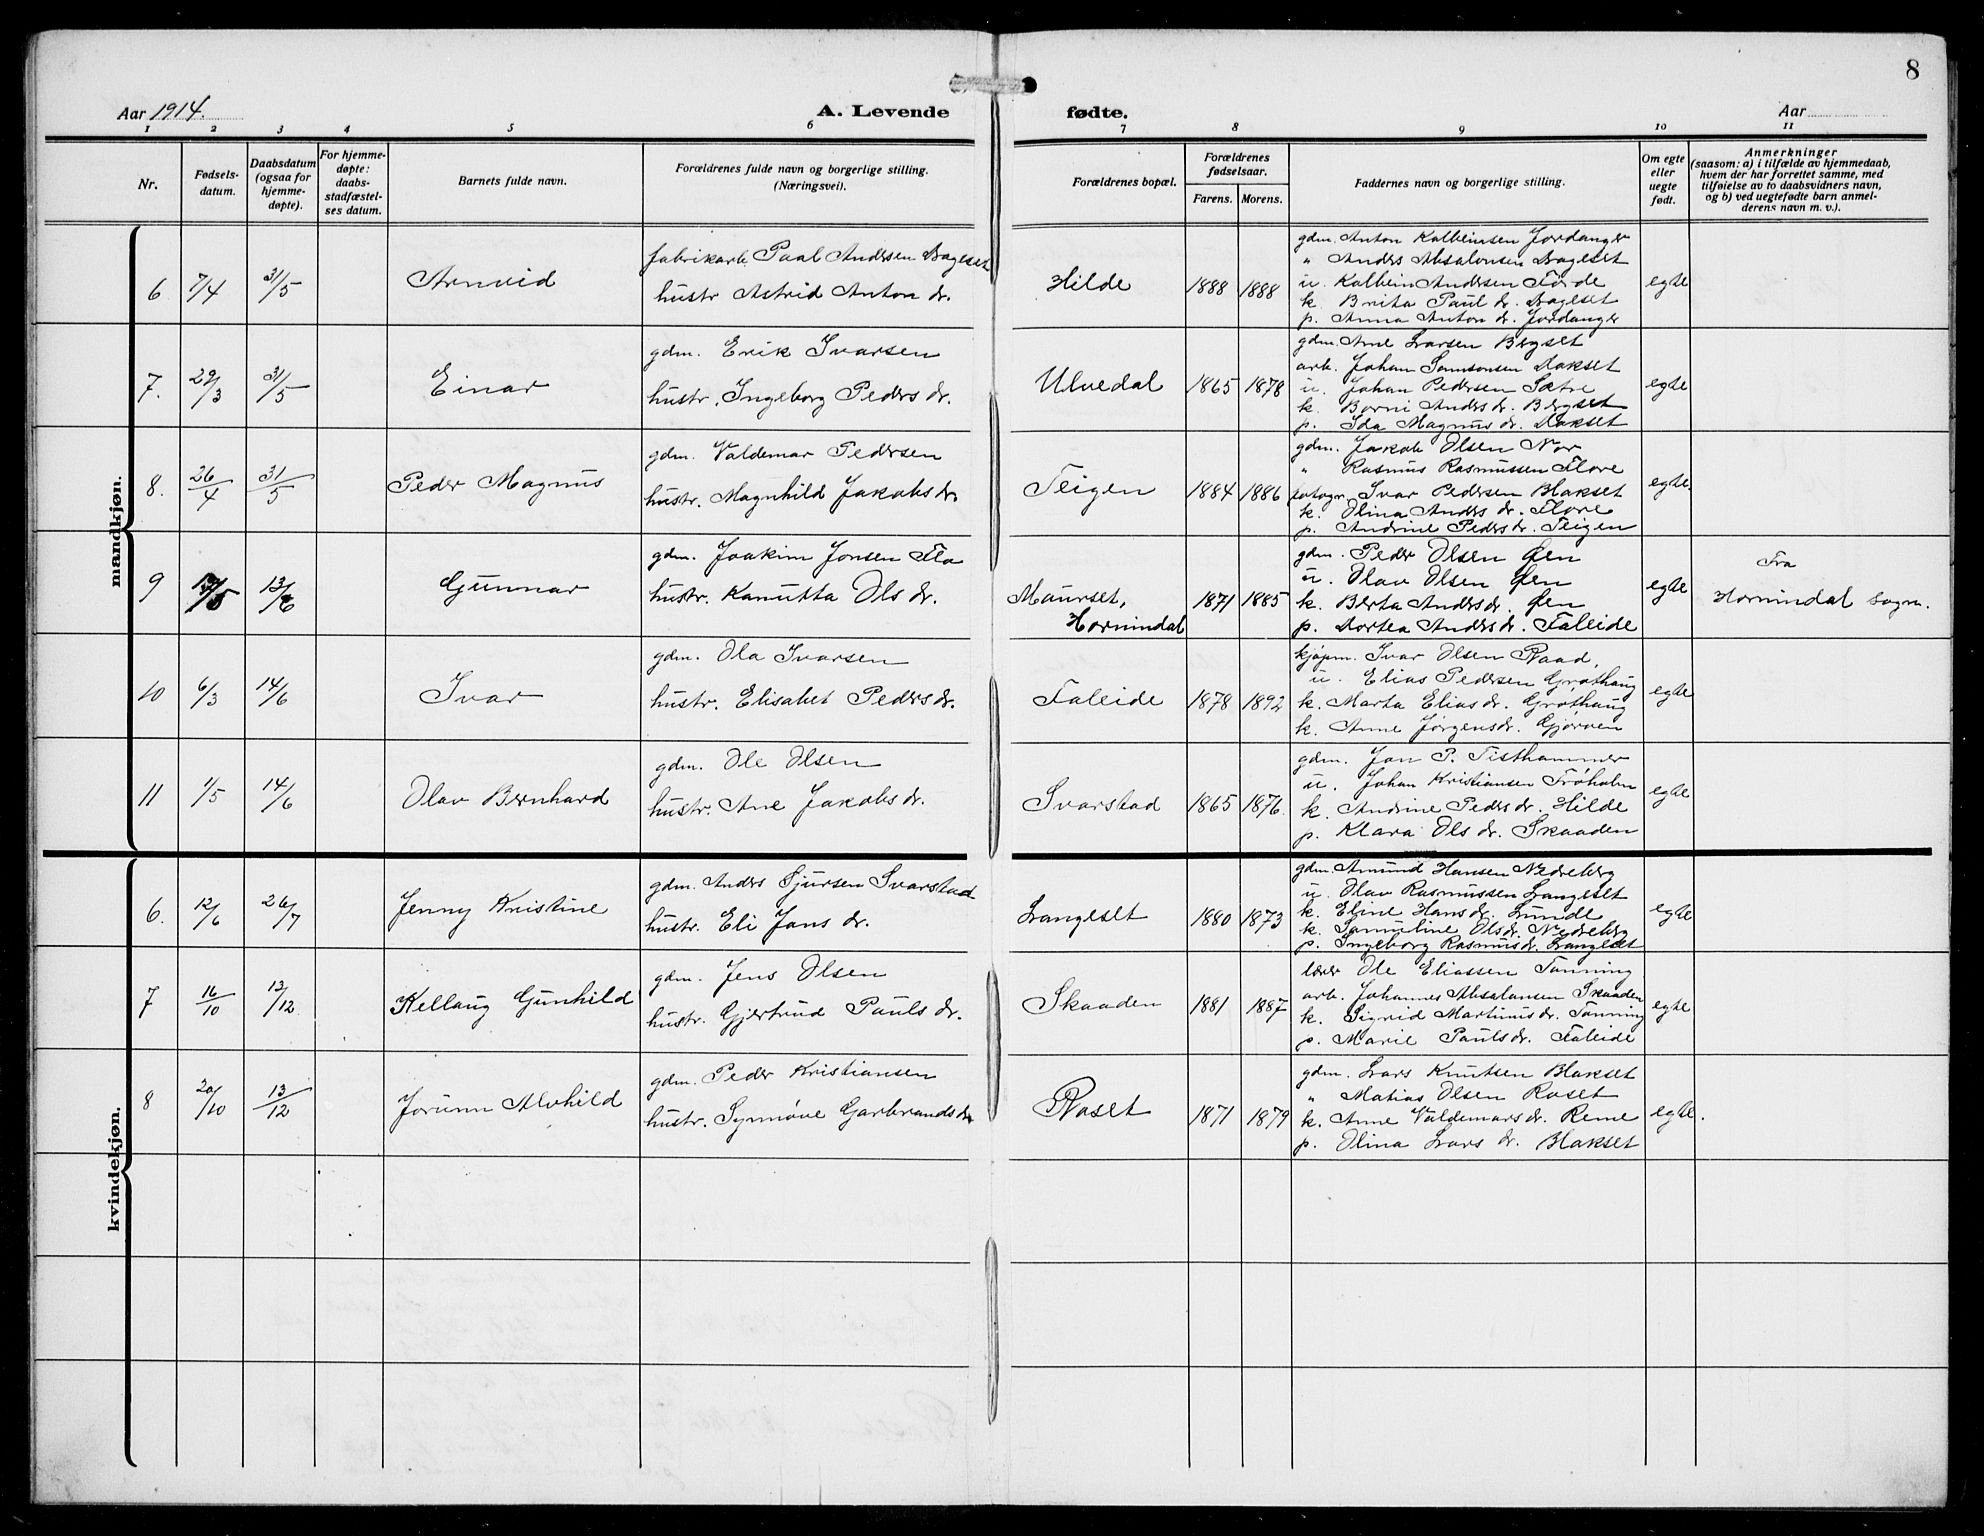 8
Aar 1914.
A. Levende fødte.
Aar
1 2 3 4 5 6 7 8 9 10 11
Nr.
Fødsels-
datum.
Daabsdatum
(ogsaa for
hjemme-
døpte).
For hjemme-
døpte:
daabs-
stadfæstel-
ses datum.
Barnets fulde navn.
Forældrenes fulde navn og borgerlige stilling.
(Næringsvei).
Forældrenes bopæl.
Forældrenes
fødselsaar.
Farens. Morens.
Faddernes navn og borgerlige stilling.
Om egte
eller
uegte
født.
Anmerkninger
(saasom: a) i tilfælde av hjemmedaab,
hvem der har forrettet samme, med
tilføielse av to daabsvidners navn,
og b) ved uegtefødte barn anmel-
derens navn m. v.).
mandkjøn.
6 7/4 31/5 Arnvid
fabrikarb. Paal Andersen Dageset
hustr. Astrid Anton dr.
Hilde 1888 1888
gdm. Anton Kolbeinsen Jordanger
" Anders Absalonsen Dageset
u. Kolbein Andersen Førde
k. Brita Paul dr. Dageset
p. Anna Anton dr. Jordanger
egte
7. 29/3 31/5 Einar
gdm. Erik Ivarsen
hustr. Ingeborg Peders dr.
Ulvedal 1865 1878
gdm. Arne Larsen Bergset
arb. Johan Samsonsen Dokset
u. Johan Pedersen Sætre
k. Borni Anders dr. Bergset
p. Ida Magnus dr. Dokset
egte
8. 26/4 31/5 Peder Magnus
gdm. Valdemar Pedersen
hustr. Magnhild Jakobs dr.
Teigen 1884 1886
gdm. Jakob Olsen Nor
" Rasmus Rasmussen Flore
fotogr. Ivar Pedersen Blakset
k. Olina Anders dr. Flore
p. Andrine Peders dr. Teigen
egte.
9 /5 13/6 Gunnar
gdm. Joakim Jonsen Flo
hustr. Kanutta Ols dr.
Maurset,
Hornindal
1871 1885
gdm. Peder Olsen Øen
u. Olav Olsen Øen
k. Berta Anders dr. Øen
p. Dortea Anders dr. Faleide
egte
Fra
Hornindal sogn.
10 6/3 14/6 Ivar
gdm. Ola Ivarsen
hustr. Elisabet Peders dr.
Faleide 1878 1892
kjøpm. Ivar Olsen Raad,
u. Elias Pedersen Grøthaug
k. Marta Elias dr. Grøthaug
k. Anne Jørgens dr. Gjørven
egte
11 1/5 14/6 Olav Bernhard
gdm. Ole Olsen
hustr. Ane Jakobs dr.
Svarstad 1865 1876.
gdm. Jon P. Tisthammer
u. Johan Kristiansen Trøholm
k. Andrine Peders dr. Hilde
p. Klara Ols dr. Skaaden
egte
kvindekjøn.
6. 12/6 26/7 Jenny Kristine
gdm. Anders Sjursen Svarstad
hustr. Eli Jans dr.
Langeset 1880 1873
gdm. Amund Hansen Nedreberg
u. Olav Rasmussen Langeset
k. Eline Hans dr. Lunde
k. Samuline Ols dr. Nedreberg
p. Ingeborg Rasmus dr. Langeset
egte
7 16/10 13/12 Kellaug Gunhild
gdm. Jens Olsen
hustr. Gjertrud Pauls dr.
Skaaden 1881 1887
lærer Ole Eliassen Tonning
arb. Johannes Absalonsen Skaaden
k. Sigrid Martinus dr. Tonning
p. Marie Pauls dr. Faleide
egte
8 20/10 13/12 Jorunn Alvhild
gdm. Peder Kristiansen
hustr. Synnøve Garbrands dr.
Roset 1871 1879
gdm. Lars Knutsen Blakset
" Matias Olsen Roset
k. Anne Valdemars dr. Reme
p. Olina Lars dr. Blakset
egte.